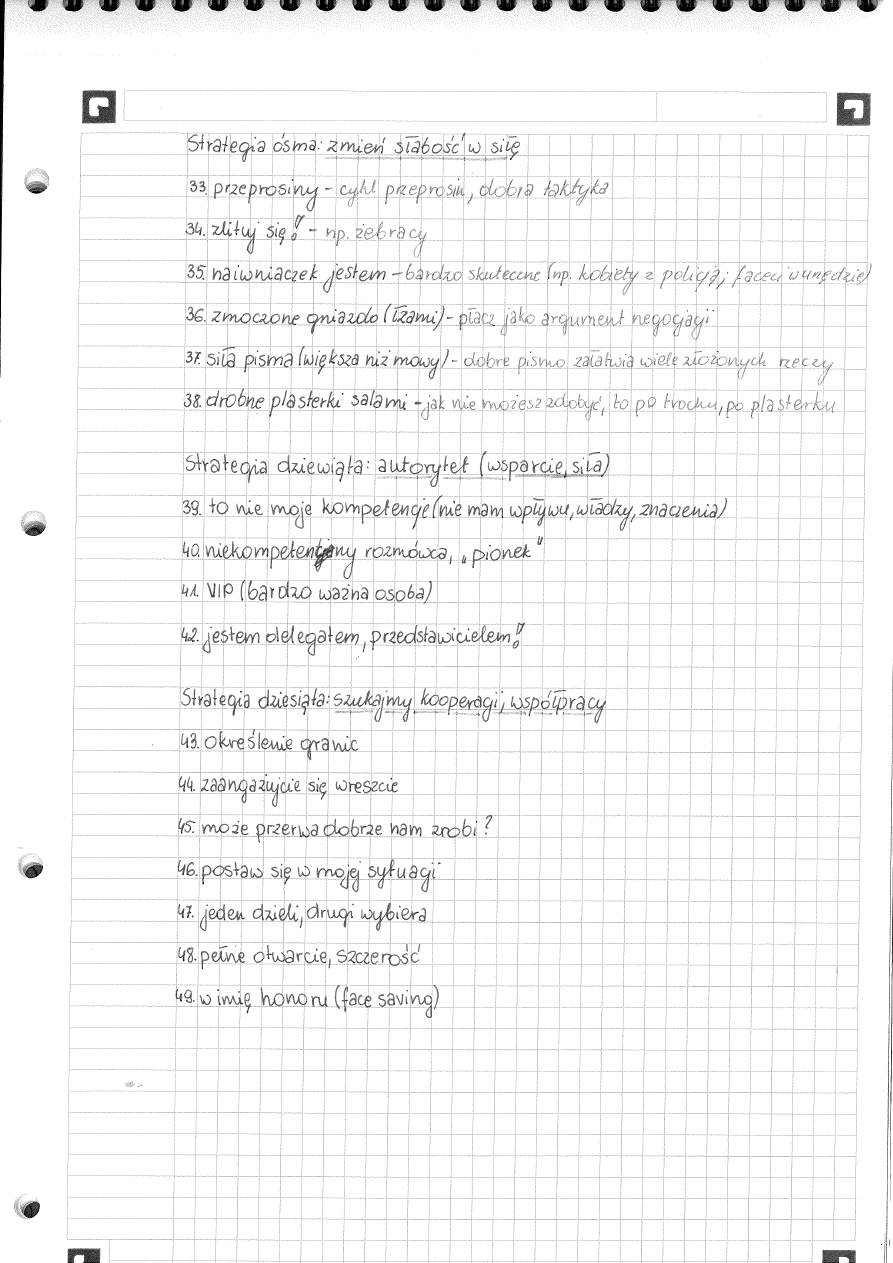 Strategia ósma: zmień słabość w siłę
33. przeprosiny – cykl przeprosin, dobra taktyka
34. zlituj się! – np. żebracy
35. naiwniaczek jestem – bardzo skuteczne (np. kobiety z policją; faceci w urzędzie)
36. zmoczone gniazdo (łzami) – płacz jako argument negocjacji
37. siła pisma (większa niż mowy) – dobre pismo załatwia wiele złożonych rzeczy
38. drobne plasterki salami – jak nie możesz zdobyć, to po trochu, po plasterku
Strategia dziewiąta: autorytet (wsparcie, siła)
39. to nie moje kompetencje (nie mam wpływu, władzy, znaczenia)
40. niekompetentny rozmówca, „pionek”
41. VIP (bardzo ważna osoba)
42. jestem delegatem, przedstawicielem!
Strategia dziesiąta: szukajmy kooperacji, współpracy
43. określenie granic
44. zaangażujcie się wreszcie
45. może przerwa dobrze nam zrobi?
46. postaw się w mojej sytuacji
47. jeden dzieli, drugi wybiera
48. pełne otwarcie, szczerość
49. w imię honoru (face saving)